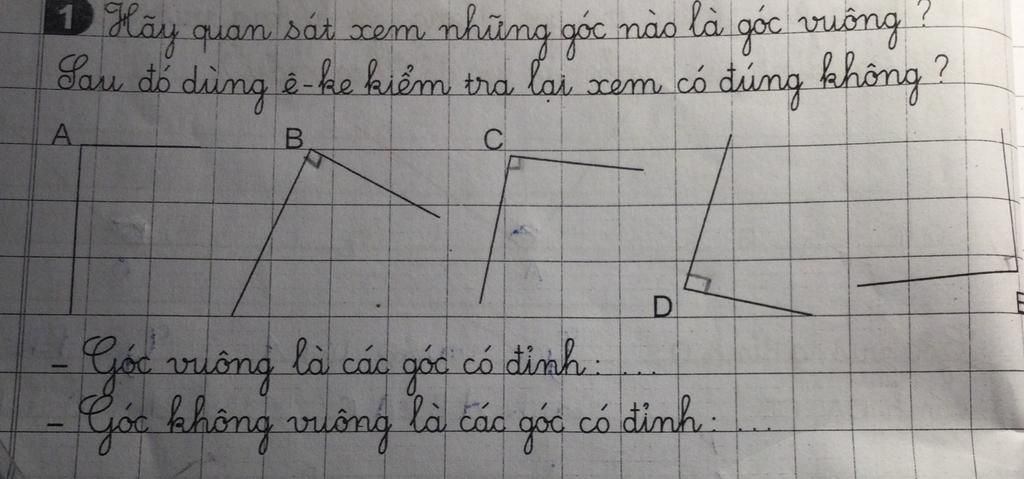 1 Hãy quan sát xem những góc nào là góc vuông ?
Sau đó dùng ê-ke kiểm tra lại xem có đúng không ?
A B C
D E
- Góc vuông là các góc có đỉnh: ...
- Góc không vuông là các góc có đỉnh: ...